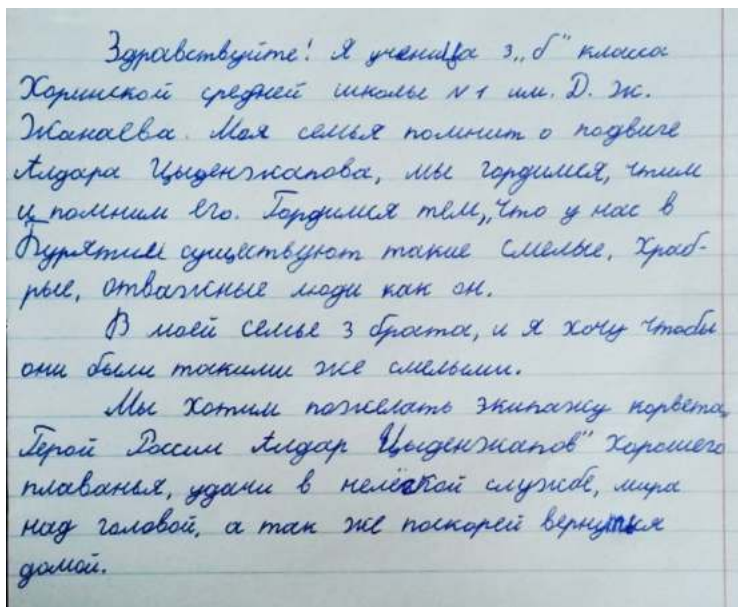 Здравствуйте! Я ученица 3 „б" класса
Хоринской средней школы №1 им. Д. Ж.
Жанаева. Моя семья помнит о подвиге
Алдара Цыденжапова, мы гордимся, чтим
и помним его. Гордимся тем, что у нас в
Бурятии существуют такие смелые, храб-
рые, отважные люди как он.
В моей семье 3 брата, и я хочу чтобы
они были такими же смелыми.
Мы хотим пожелать экипажу корвета
„Герой России Алдар Цыденжапов" хорошего
плаванья, удачи в нелёгкой службе, мира
над головой, а так же поскорей вернуться
домой.